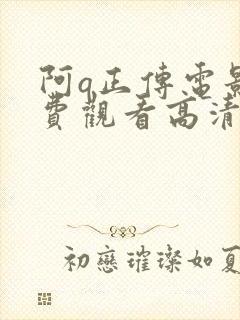 阿q正傳電影
費觀看高清
初戀璀璨如夏